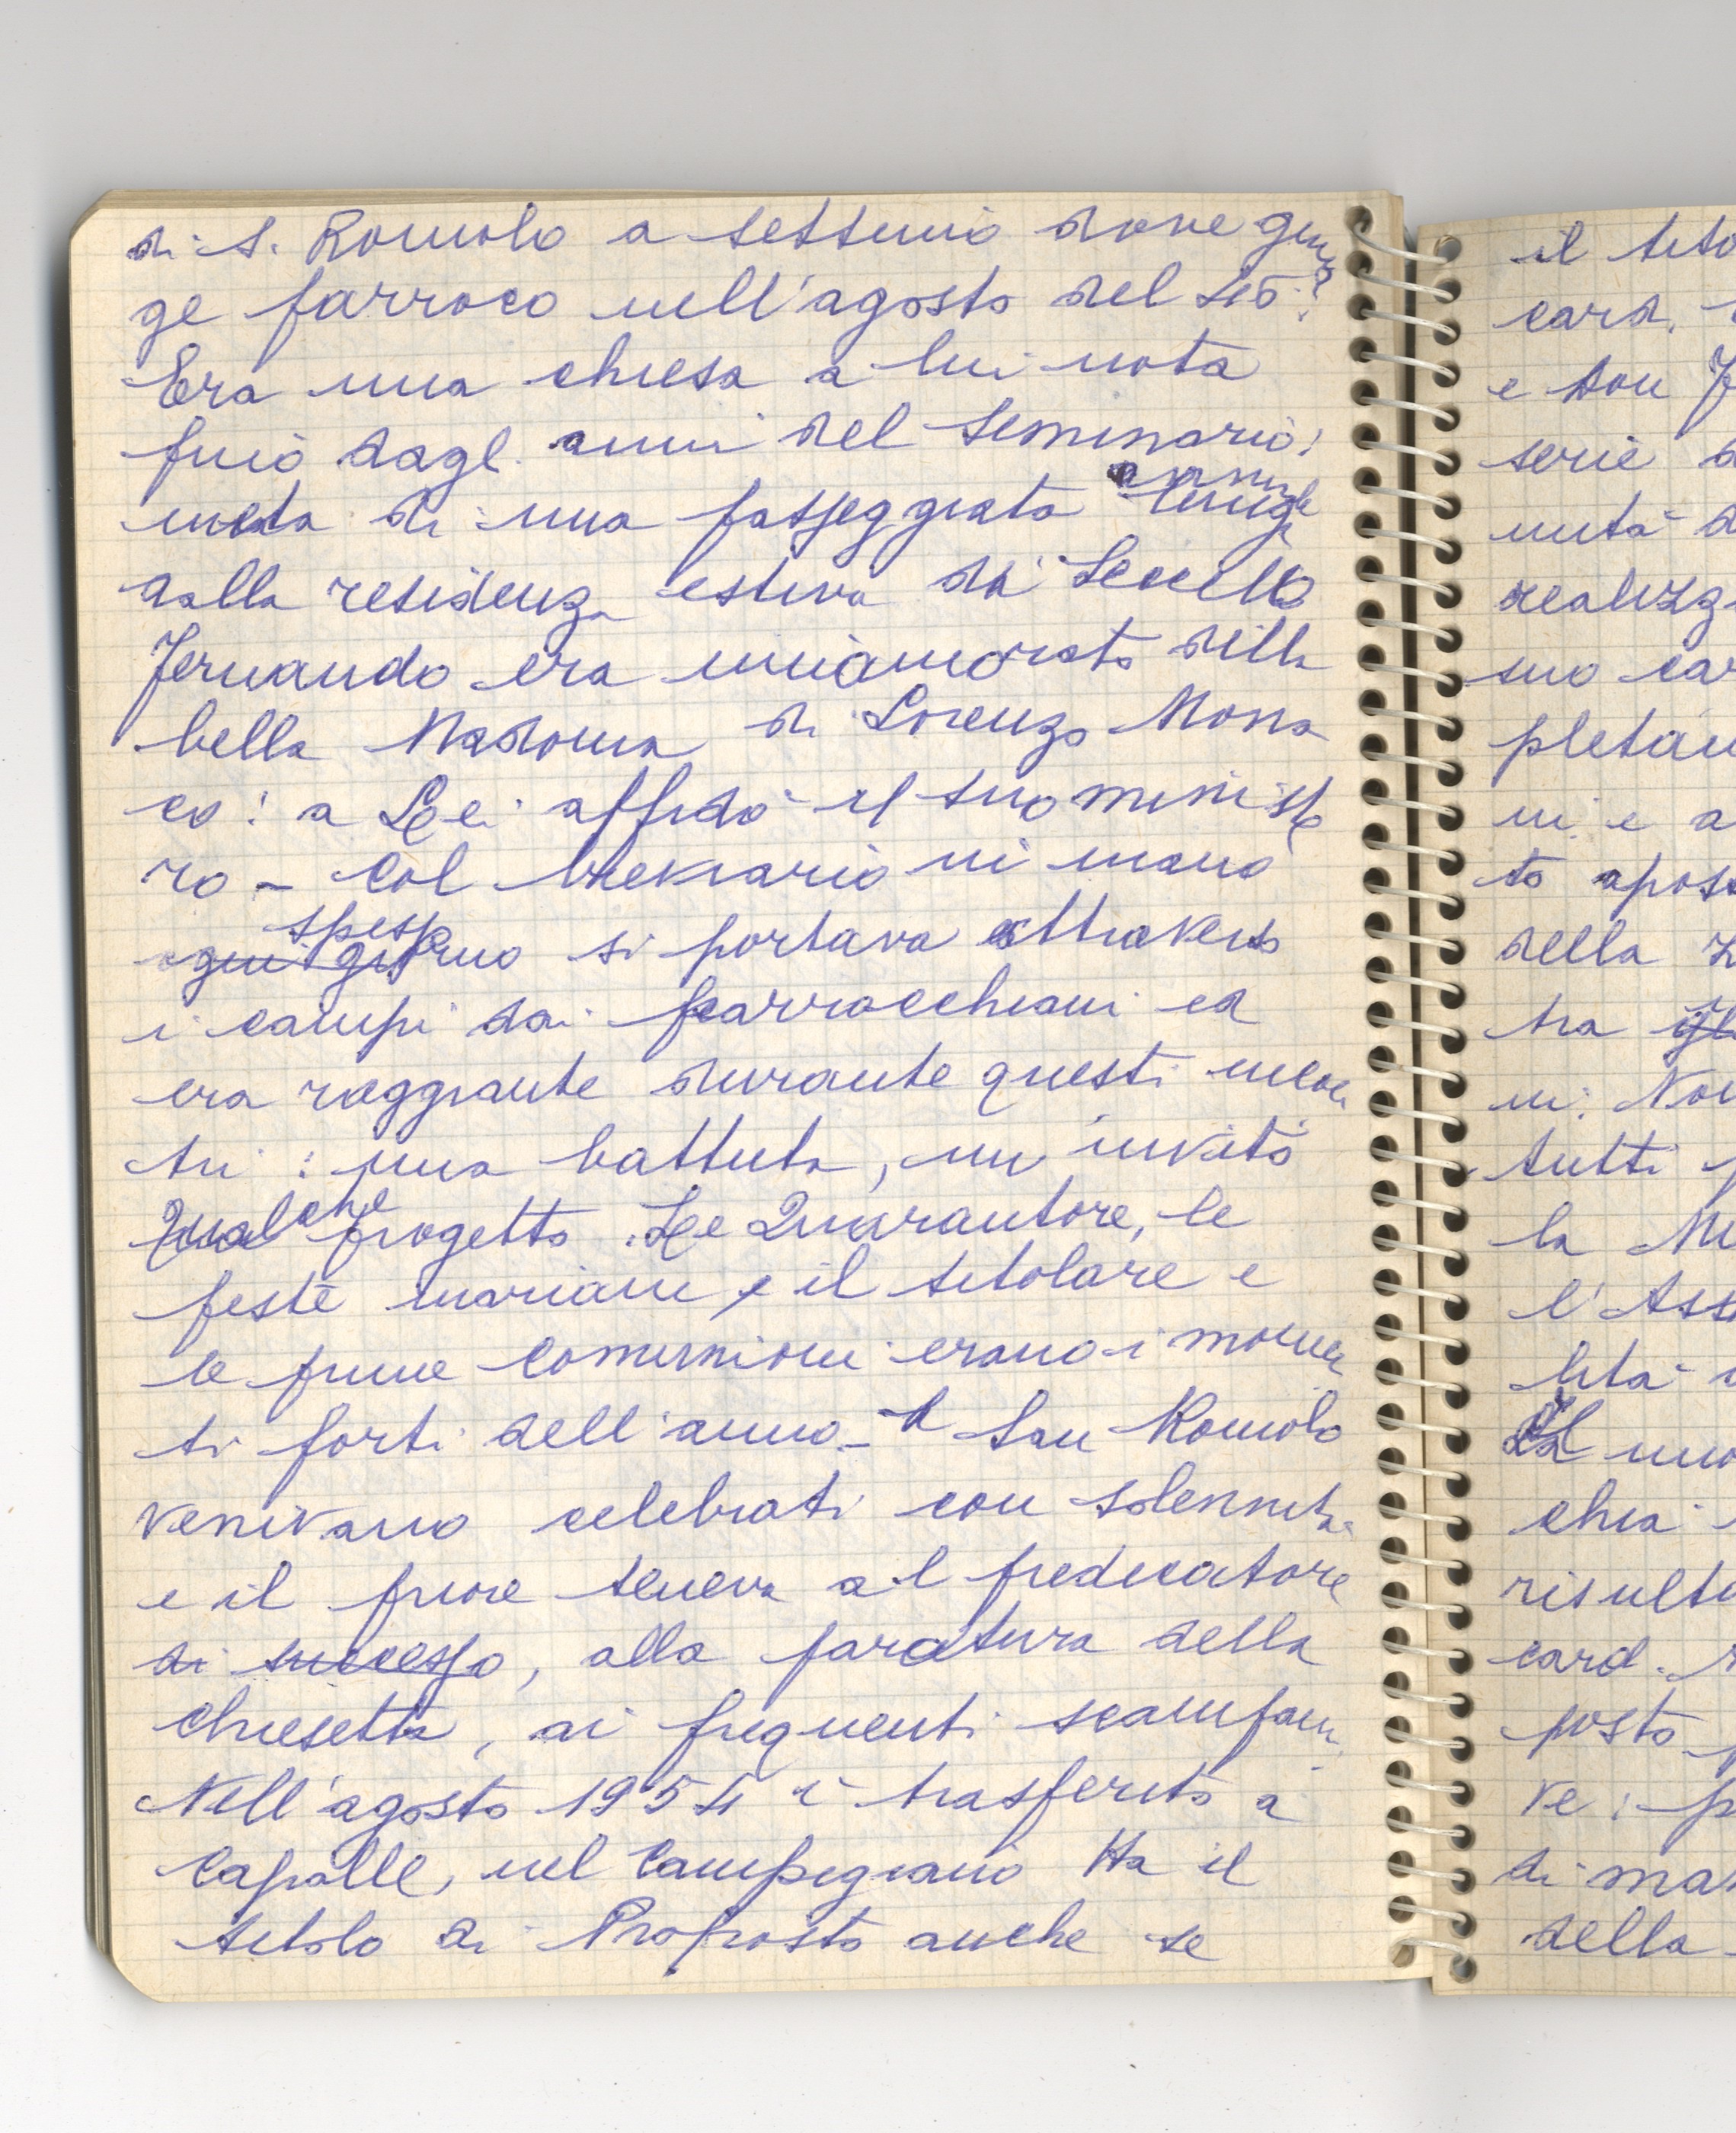 di S. Romolo a Settimo dove giun
ge parroco nell'agosto del
Era una chiesa a lui nota
fino dagl. anni del Seminario:
meta di una passeggiata
dalla residenza estiva di Lecceto
Fernando era innamorato della
bella Madonna di Lorenzo Mona
co: a Lei affidò il suo ministe
ro - Col breviario in mano
spesso
ogni giorno si portava attraverso
i campi dai parrocchiani ed
era raggiante durante questi incon
tri: una battuta, un invito
Qualche progetto. Le Quarantore, le
feste mariane, e il titolare e
le prime comunioni erano i momen
ti forti dell'anno - A San Romolo
venivano celebrati con solennità
e il priore teneva al predicatore
di successo, alla paratura della
chiesetta, ai frequenti scampan.
Nell'agosto 1954 è trasferito a
Capalle, nel Campigiano Ha il
titolo di Proposto anche se
il tito
card.
e don F
serie d
nità d
realizza
suo car
pletan
ni e a
to apost
della
tra
ni: Nov
tutti
la M
l'Ass
lità
Il nuo
chia
risulta
card.
posto
ve: p
di man
della